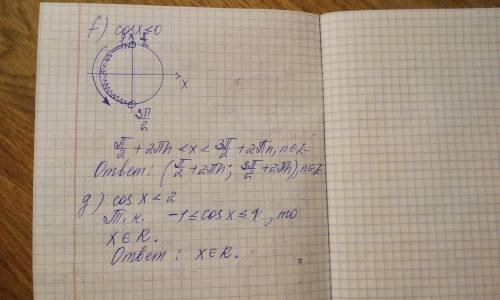 f) cos x < 0
y
π/2
x
3π/2
π/2 + 2πn < x < 3π/2 + 2πn, n∈Z
Ответ: (π/2 + 2πn; 3π/2 + 2πn), n∈Z
g) cos x < 2
Т.к. -1 ≤ cos x ≤ 1, то
x ∈ R.
Ответ: x ∈ R.